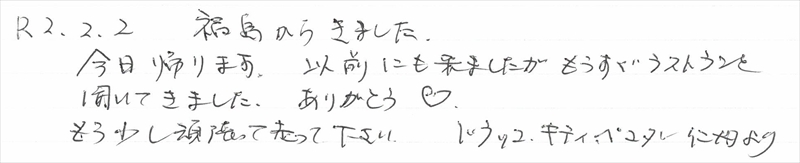 R2.2.2 福島からきました.
今日帰ります. 以前にも来ましたがもうすぐラストランと
聞いてきました. ありがとう♡.
もう少し頑張って走って下さい. ドラッコ.キティ.ペコタン 仁母より